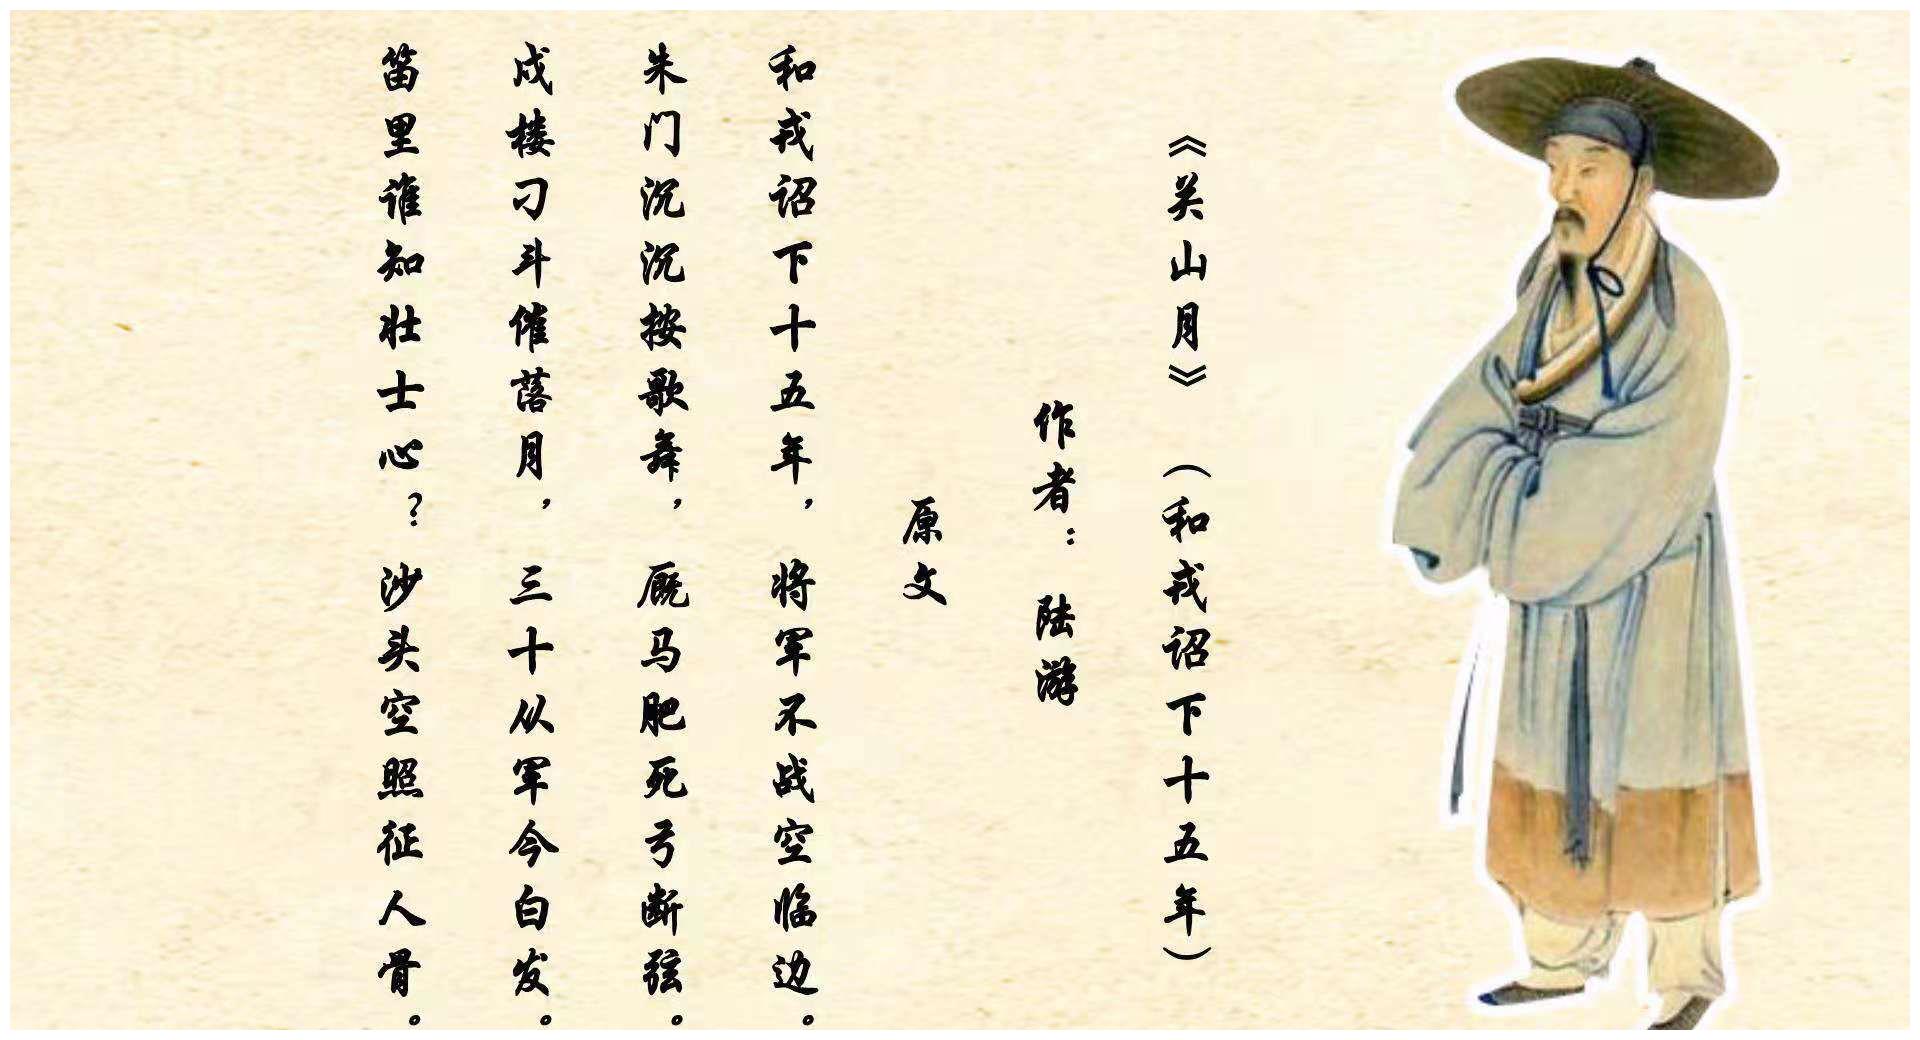 《关山月》（和戎诏下十五年）
作者：陆游
原文
和戎诏下十五年，将军不战空临边。
朱门沉沉按歌舞，厩马肥死弓断弦。
戍楼刁斗催落月，三十从军今白发。
笛里谁知壮士心？沙头空照征人骨。